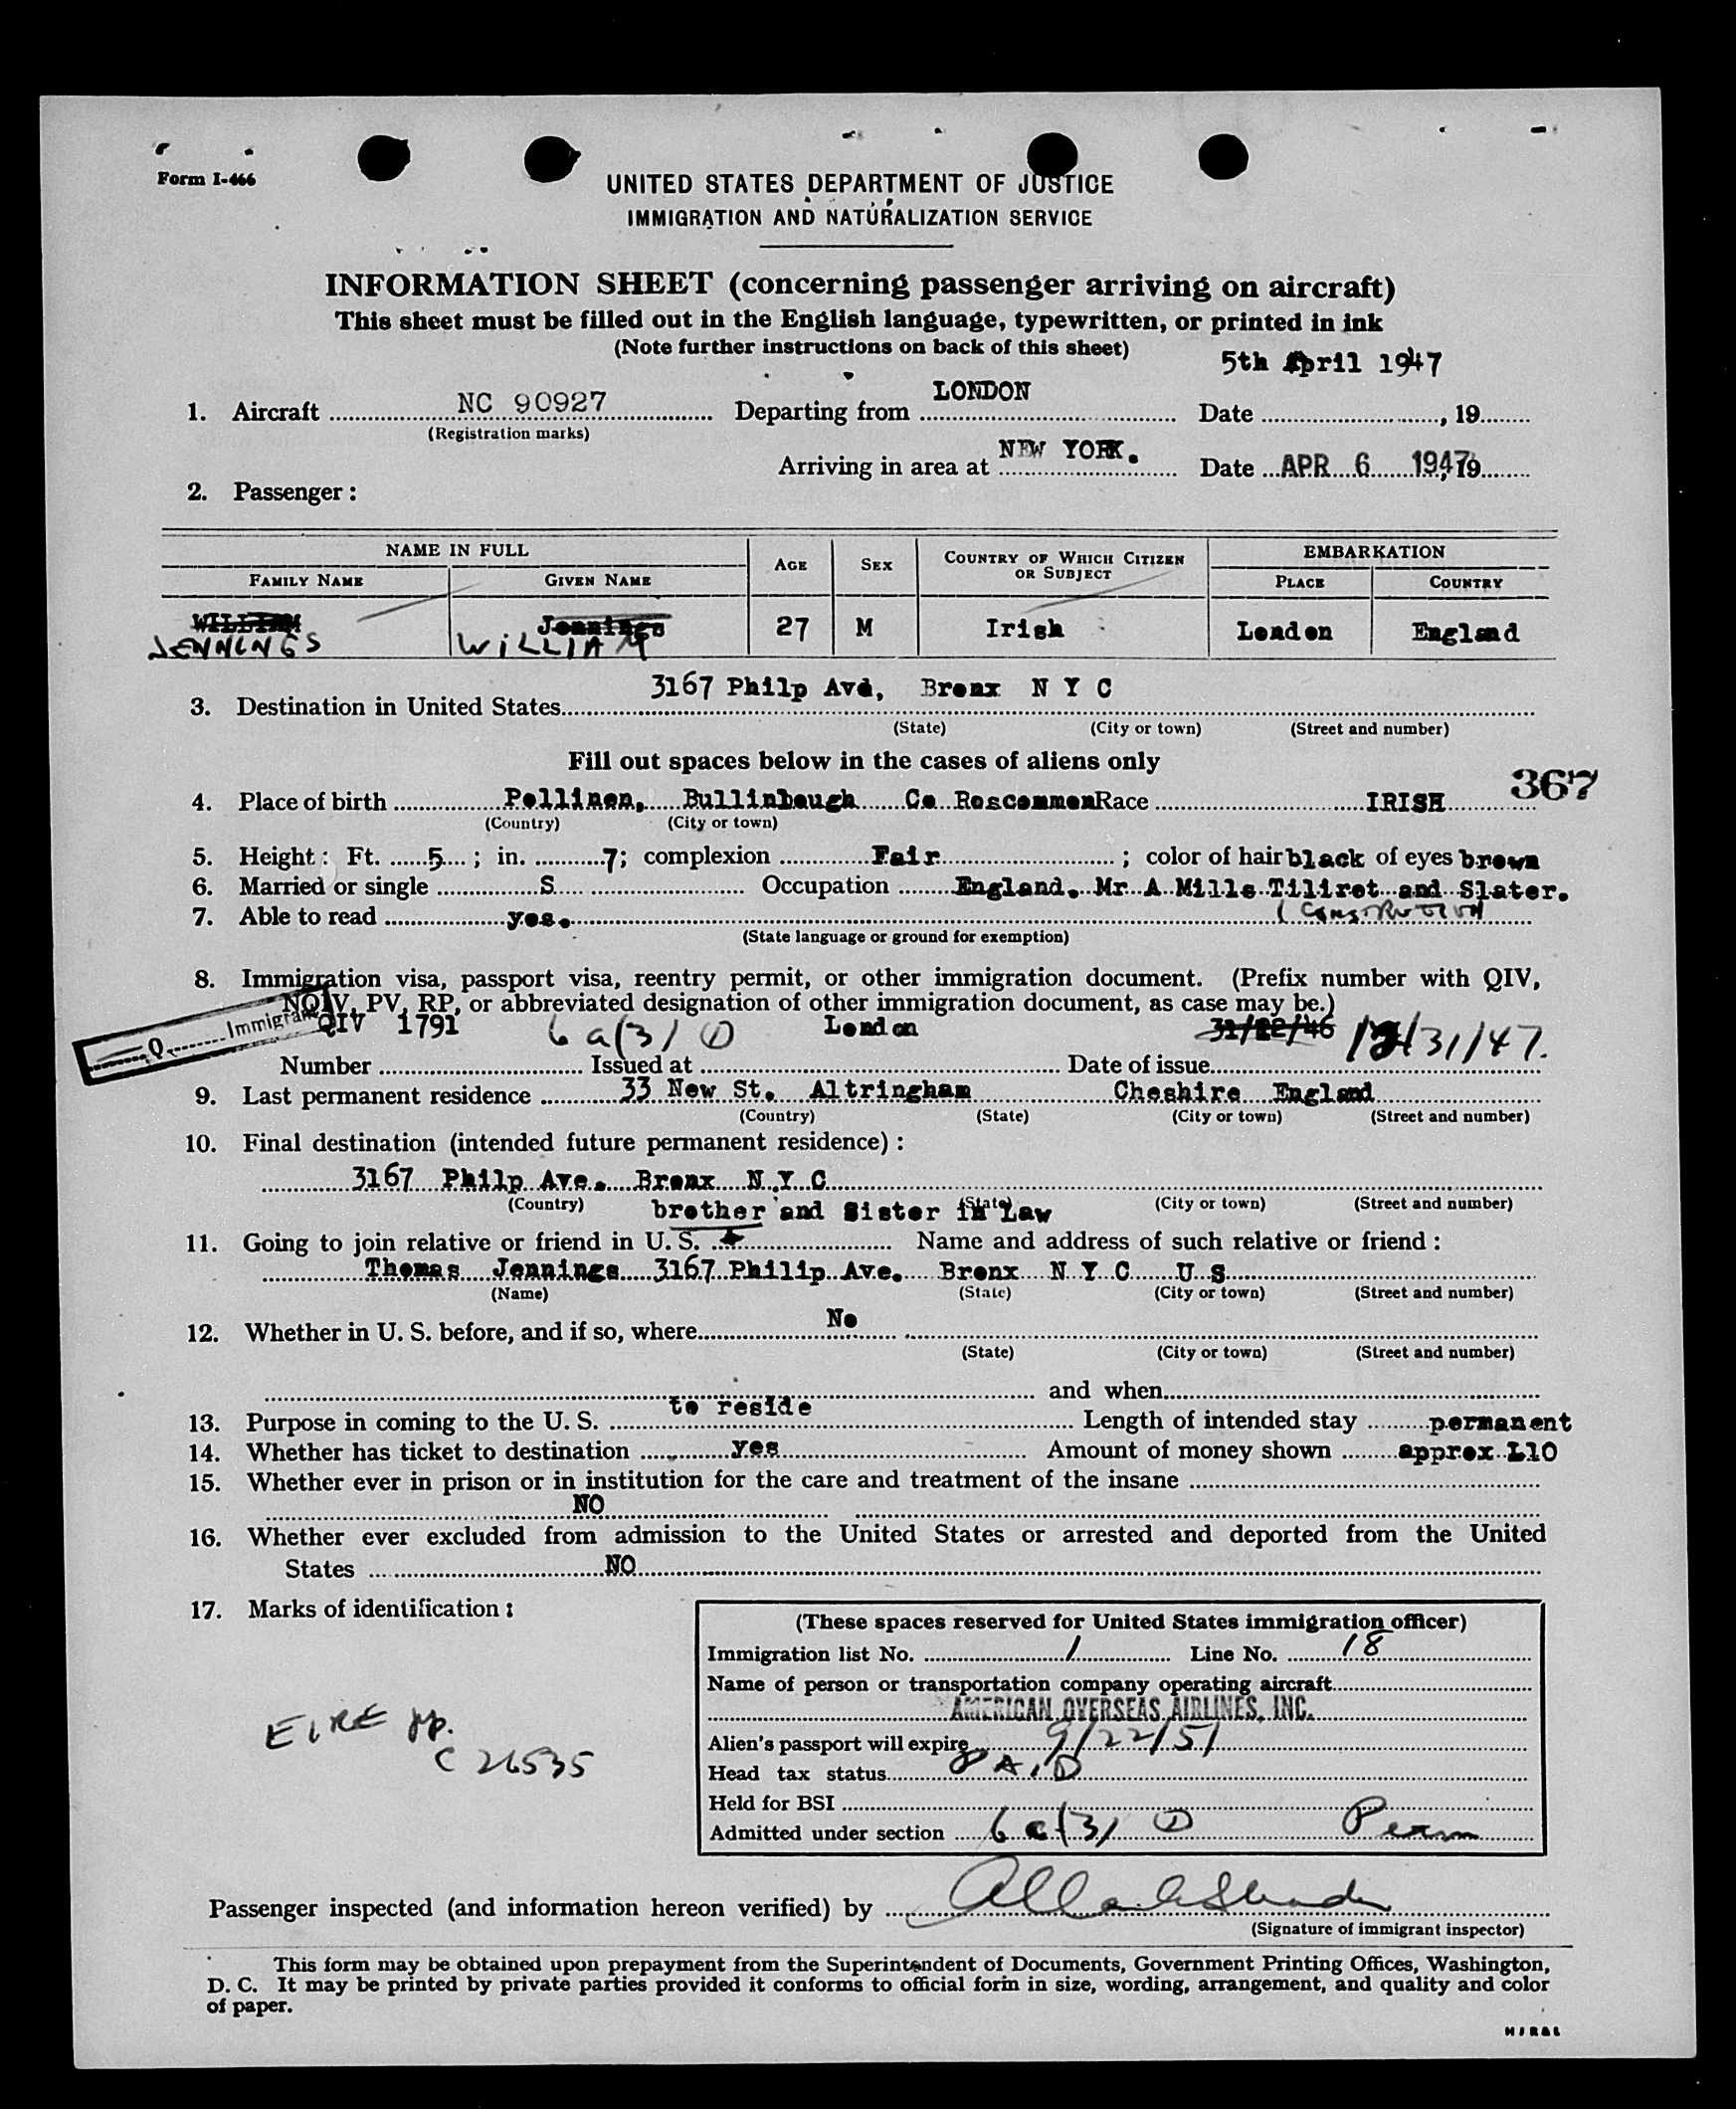 Form I-466
UNITED STATES DEPARTMENT OF JUSTICE
IMMIGRATION AND NATURALIZATION SERVICE
INFORMATION SHEET (concerning passenger arriving on aircraft)
This sheet must be filled out in the English language, typewritten, or printed in ink
(Note further instructions on back of this sheet)
5th April 1947
1. Aircraft NC 90927 Departing from LONDON Date , 19
(Registration marks)
Arriving in area at NEW YORK. Date APR 6 1947, 19
2. Passenger:
NAME IN FULL AGE SEX COUNTRY OF WHICH CITIZEN OR SUBJECT EMBARKATION
FAMILY NAME GIVEN NAME PLACE COUNTRY
WILLIAM Jennings 27 M Irish London England
JENNINGS WILLIAM
3167 Philp Ave, Bronx N Y C
3. Destination in United States
(State) (City or town) (Street and number)
Fill out spaces below in the cases of aliens only
367
4. Place of birth Pollinen, Bullinbaugh Co Roscommon Race IRISH
(Country) (City or town)
5. Height: Ft. 5; in. 7; complexion Fair; color of hair black of eyes brown
6. Married or single S Occupation England. Mr A Mills Tiliret and Slater.
7. Able to read yes.
(State language or ground for exemption)
8. Immigration visa, passport visa, reentry permit, or other immigration document. (Prefix number with QIV,
NQIV, PV, RP, or abbreviated designation of other immigration document, as case may be.)
Q Immigrant
QIV 1791 6a(3) D London 31/12/46 12/31/47.
Number Issued at Date of issue
9. Last permanent residence 33 New St. Altringham Cheshire England
(Country) (State) (City or town) (Street and number)
10. Final destination (intended future permanent residence):
3167 Philp Ave. Bronx N.Y.C
(Country) (State) (City or town) (Street and number)
brother and Sister in Law
11. Going to join relative or friend in U. S. Name and address of such relative or friend:
Thomas Jennings 3167 Philip Ave. Bronx N Y C U S
(Name) (State) (City or town) (Street and number)
12. Whether in U. S. before, and if so, where No
(State) (City or town) (Street and number)
and when
13. Purpose in coming to the U. S. to reside Length of intended stay permanent
14. Whether has ticket to destination yes Amount of money shown approx L10
15. Whether ever in prison or in institution for the care and treatment of the insane
NO
16. Whether ever excluded from admission to the United States or arrested and deported from the United
States NO
17. Marks of identification:
EIRE pp.
C 26535
(These spaces reserved for United States immigration officer)
Immigration list No. 1 Line No. 18
Name of person or transportation company operating aircraft
AMERICAN OVERSEAS AIRLINES, INC.
Alien's passport will expire 9/22/51
Head tax status PAID
Held for BSI
Admitted under section 6a(3) D Perm
Passenger inspected (and information hereon verified) by
(Signature of immigrant inspector)
This form may be obtained upon prepayment from the Superintendent of Documents, Government Printing Offices, Washington,
D. C. It may be printed by private parties provided it conforms to official form in size, wording, arrangement, and quality and color
of paper.